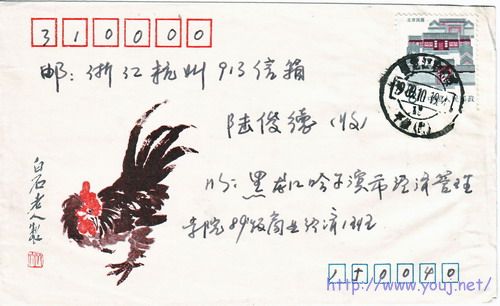 310000
邮：浙江杭州913信箱
陆俊德（收）
内：黑龙江哈尔滨市经济管理
学院89级商业经济1班
白石老人製
北京民居
150040
http://www.youj.net/